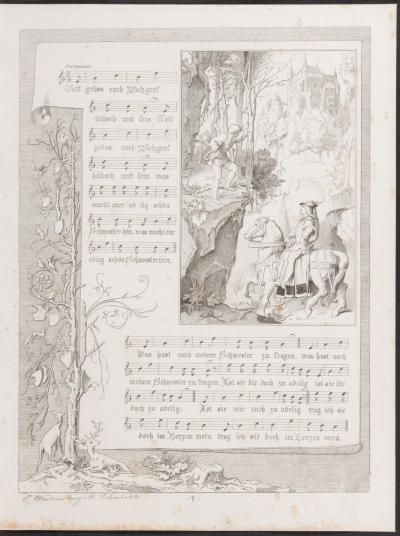 Gott grüss euch Pfalzgraf
hübsch und fein Gott
grüss euch Pfalzgraf
hübsch und fein was
macht euer ad-lig schön
Schwesterlein, was macht eur
adlig schön Schwesterlein.
Was hast nach meiner Schwester zu fragen, was hast nach
meiner Schwester zu fragen. Ist sie dir doch zu adelig ist sie dir
doch zu adelig; Ist sie mir auch zu adelig trag ich sie
doch im Herzen mein trag ich sie doch im Herzen mein.